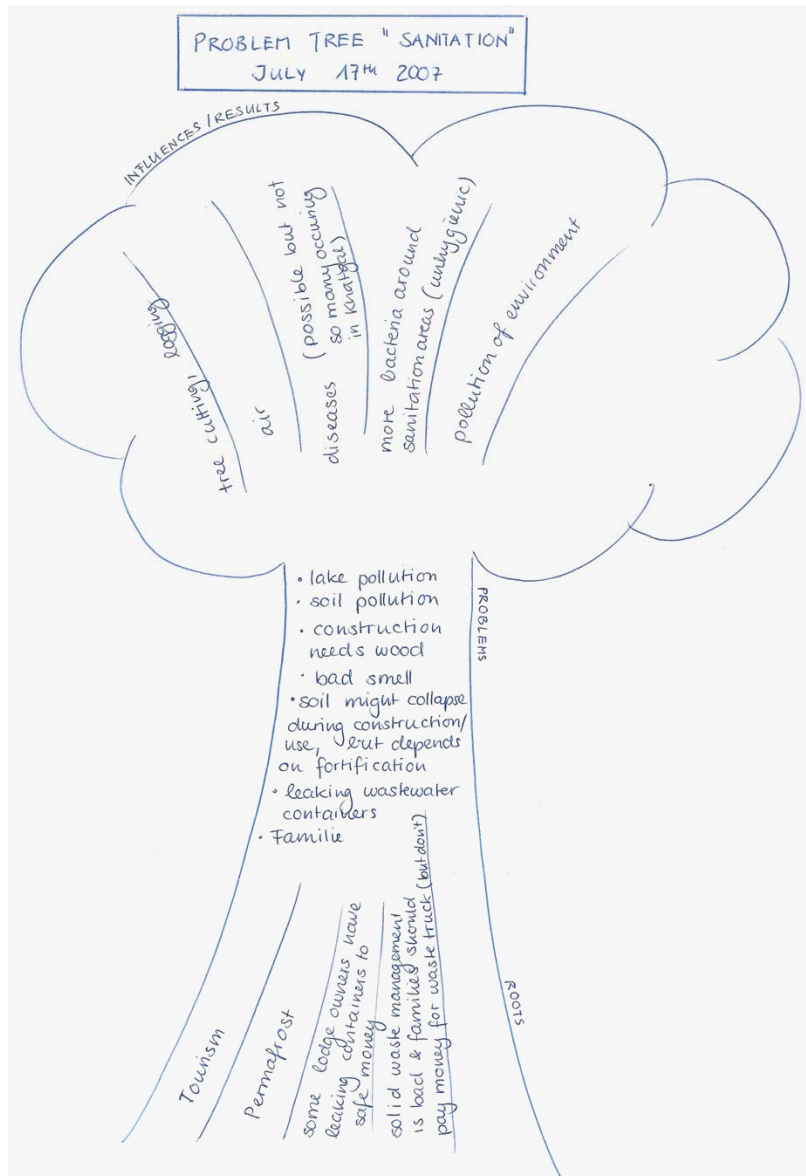 PROBLEM TREE "SANITATION"
JULY 17TH 2007
INFLUENCES/RESULTS
tree cutting, logging
air
diseases (possible but not
so many occuring
in Khatgal)
more bacteria around
sanitation areas (unhygienic)
pollution of environment
PROBLEMS
• lake pollution
• soil pollution
• construction
needs wood
• bad smell
• soil might collapse
during construction/
use, but depends
on fortification
• leaking wastewater
containers
• Familie
ROOTS
Tourism
Permafrost
some lodge owners have
leaking containers to
safe money
solid waste management
is bad & families should
pay money for waste truck (but don't)